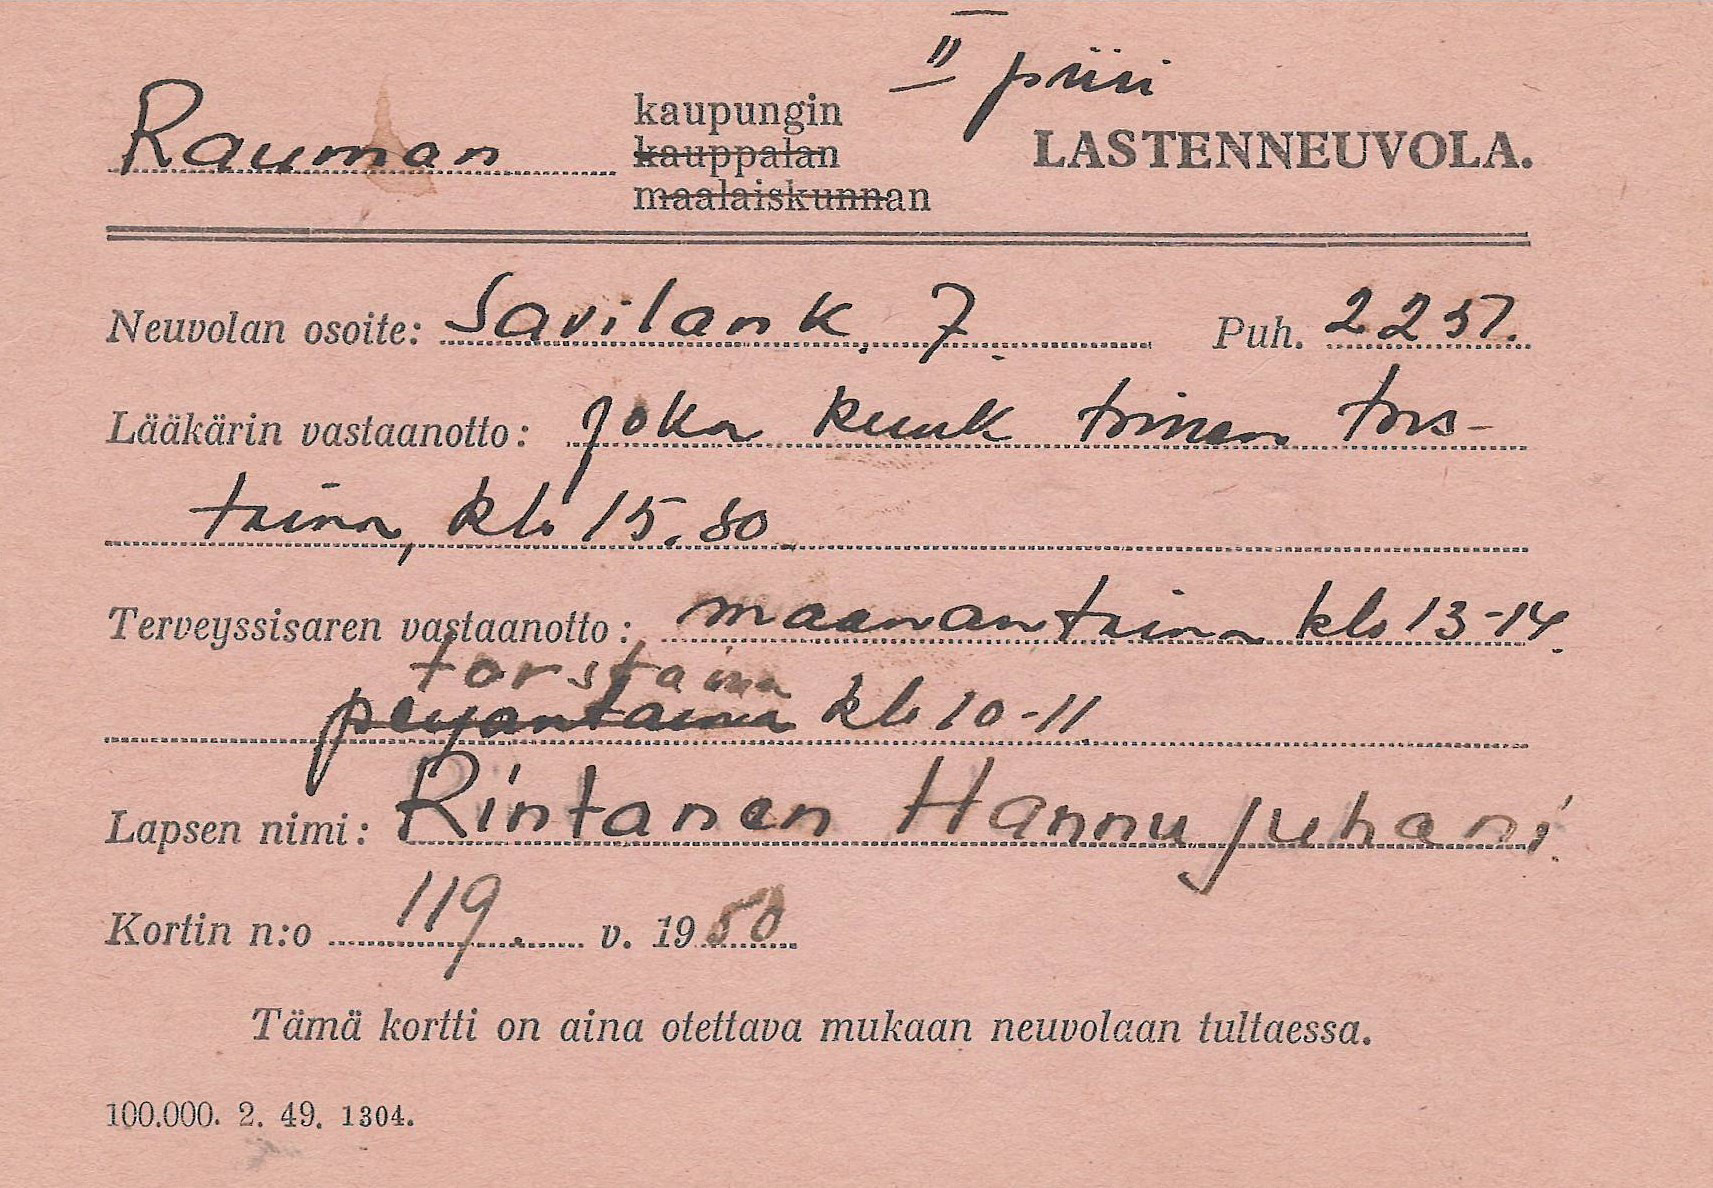 II piiri
Rauman kaupungin
kauppalan LASTENNEUVOLA.
maalaiskunnan
Neuvolan osoite: Savilank. 7. Puh. 2257.
Lääkärin vastaanotto: joka kuuk toinen tors-
taina, klo 15.30
Terveyssisaren vastaanotto: maanantaina klo 13-14.
torstaina
perjantaina klo 10-11
Lapsen nimi: Rintanen Hannu Juhani
Kortin n:o 119. v. 1950
Tämä kortti on aina otettava mukaan neuvolaan tultaessa.
100.000. 2. 49. 1304.